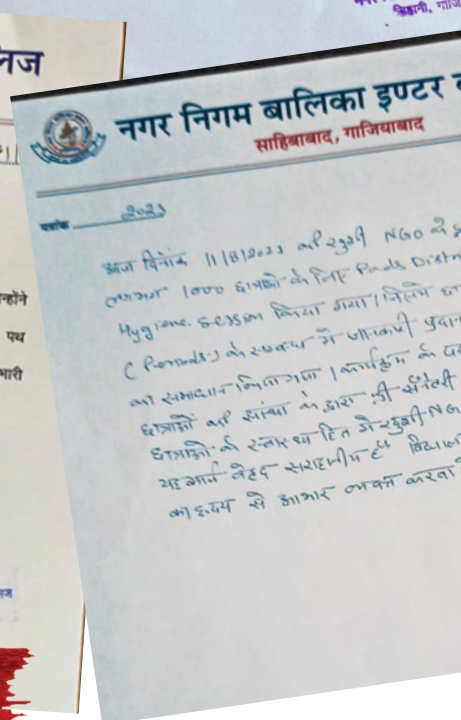 सिहानी, गाजि
नगर निगम बालिका इण्टर क
साहिबाबाद, गाजियाबाद
पत्रांक 2023
आज दिनांक 11/8/2023 को खुशी NGO के
लगभग 1000 छात्राओं के लिए Pads Distri
Hygiene Session किया गया। जिसमे
(Periods) के सम्बन्ध में जानकारी प्रदान
का समाधान किया गया। कार्यक्रम के
छात्राओं को संस्था के द्वारा फ्री सैनेटरी
छात्राओं के स्वास्थ्य हित में खुशी-NGO
यह कार्य बेहद सराहनीय है। विद्यालय
का हृदय से आभार व्यक्त करता
न्होंने
पथ
भारी